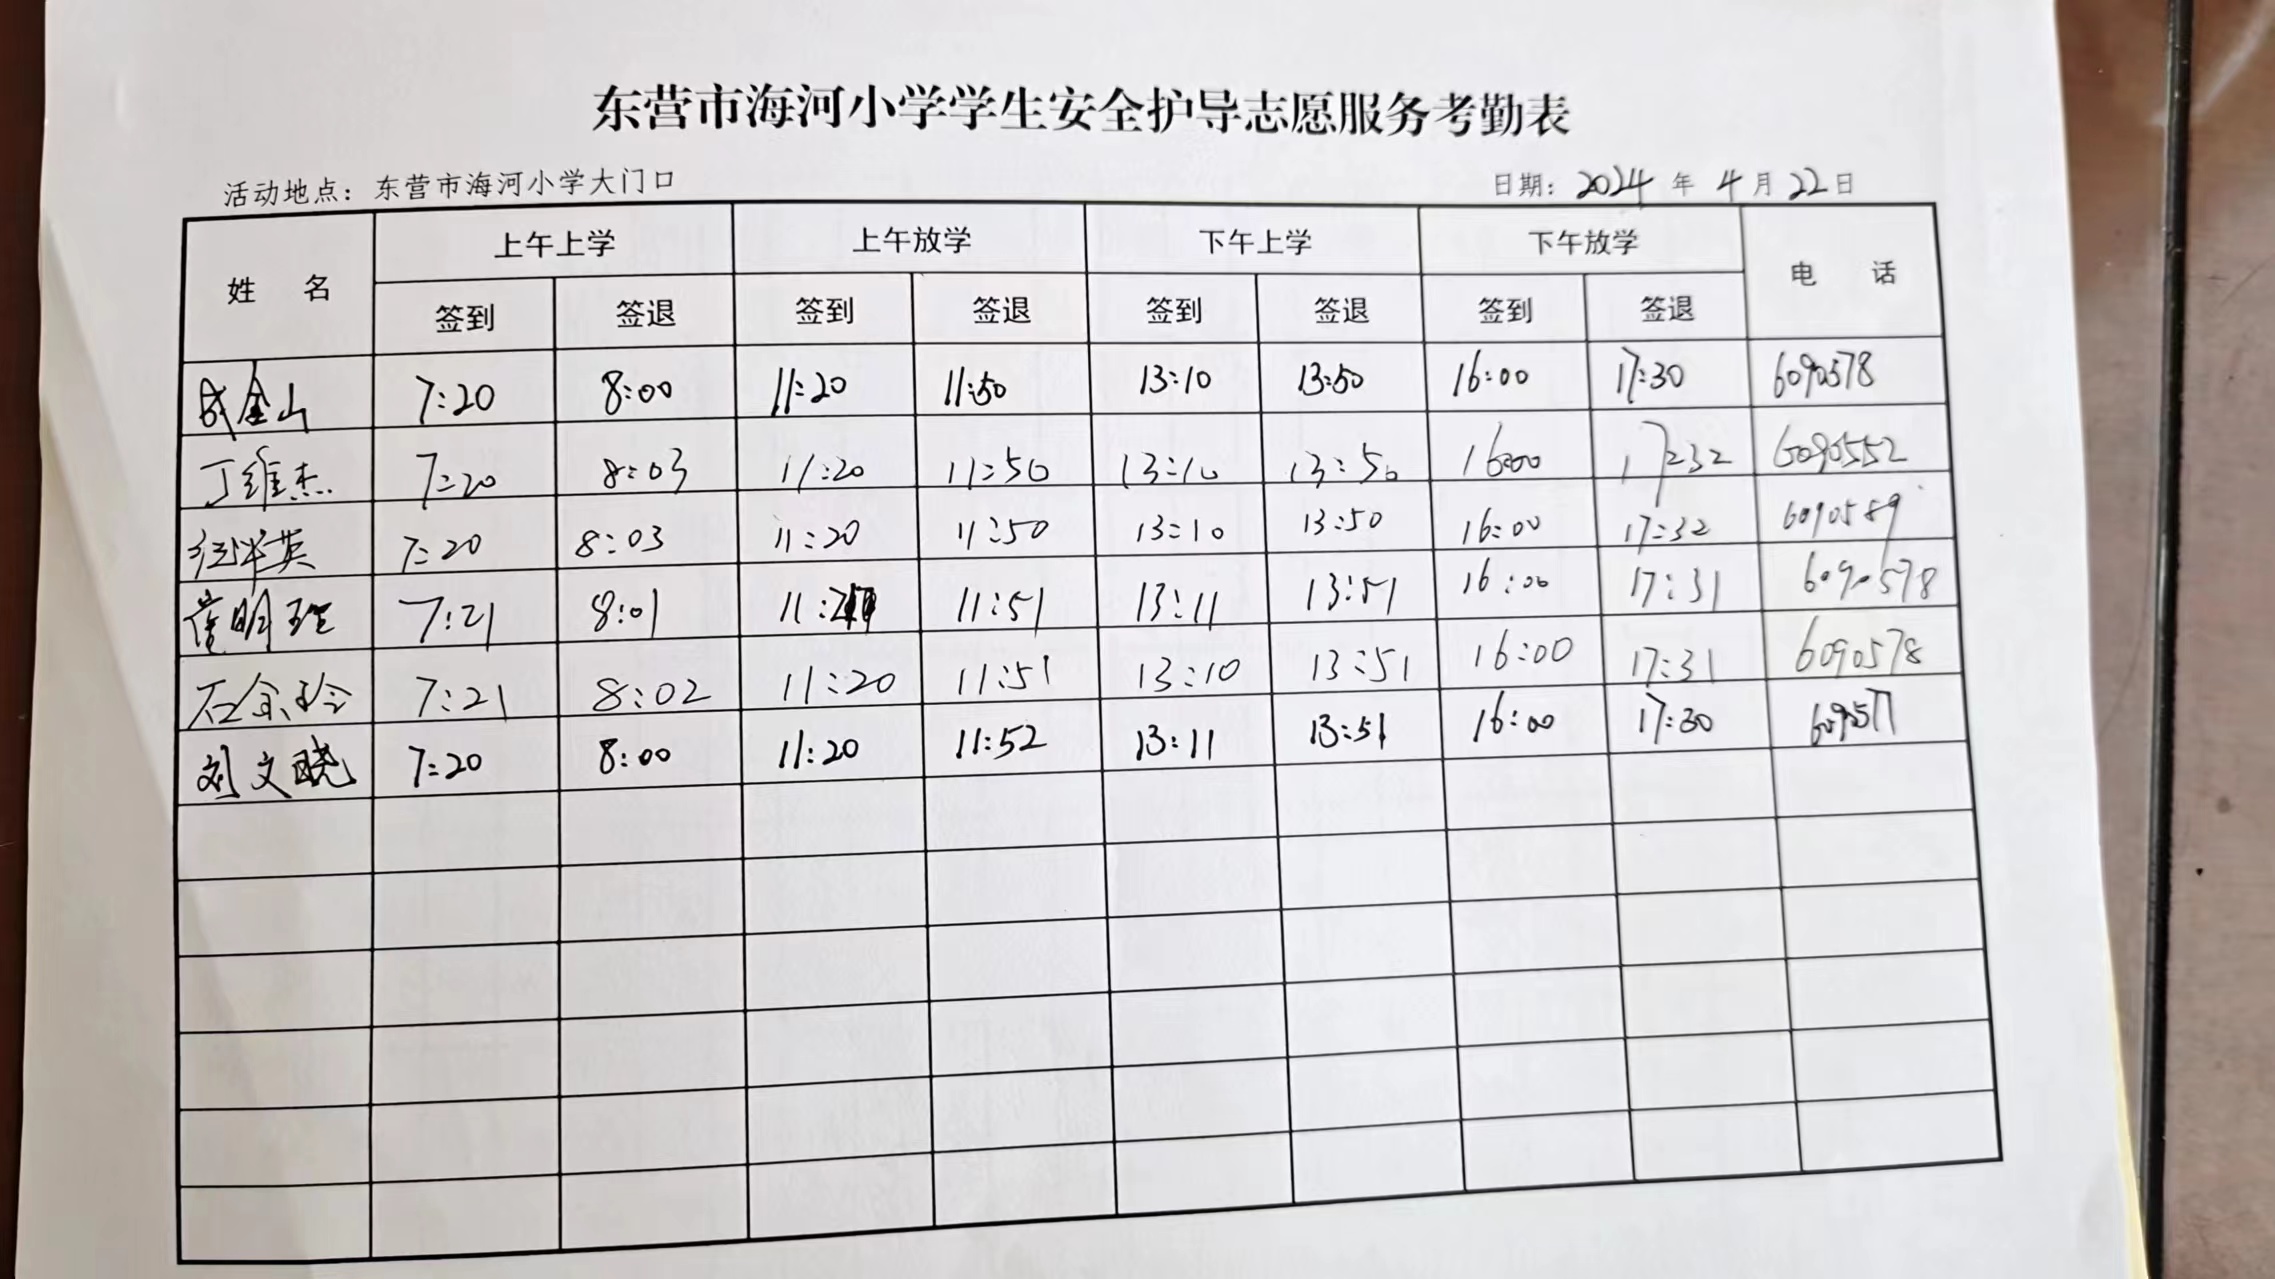 东营市海河小学学生安全护导志愿服务考勤表
活动地点：东营市海河小学大门口 日期：2024年4月22日
姓名 上午上学 上午放学 下午上学 下午放学 电话
签到 签退 签到 签退 签到 签退 签到 签退
成金山 7:20 8:00 11:20 11:50 13:10 13:50 16:00 17:30 6090578
丁维杰 7:20 8:03 11:20 11:50 13:10 13:50 16:00 17:32 6090552
7:20 8:03 11:20 11:50 13:10 13:50 16:00 17:32 6090589
7:21 8:01 11:51 13:11 13:51 16:00 17:31 6090578
7:21 8:02 11:20 11:51 13:10 13:51 16:00 17:31 6090578
刘文晓 7:20 8:00 11:20 11:52 13:11 13:51 16:00 17:30